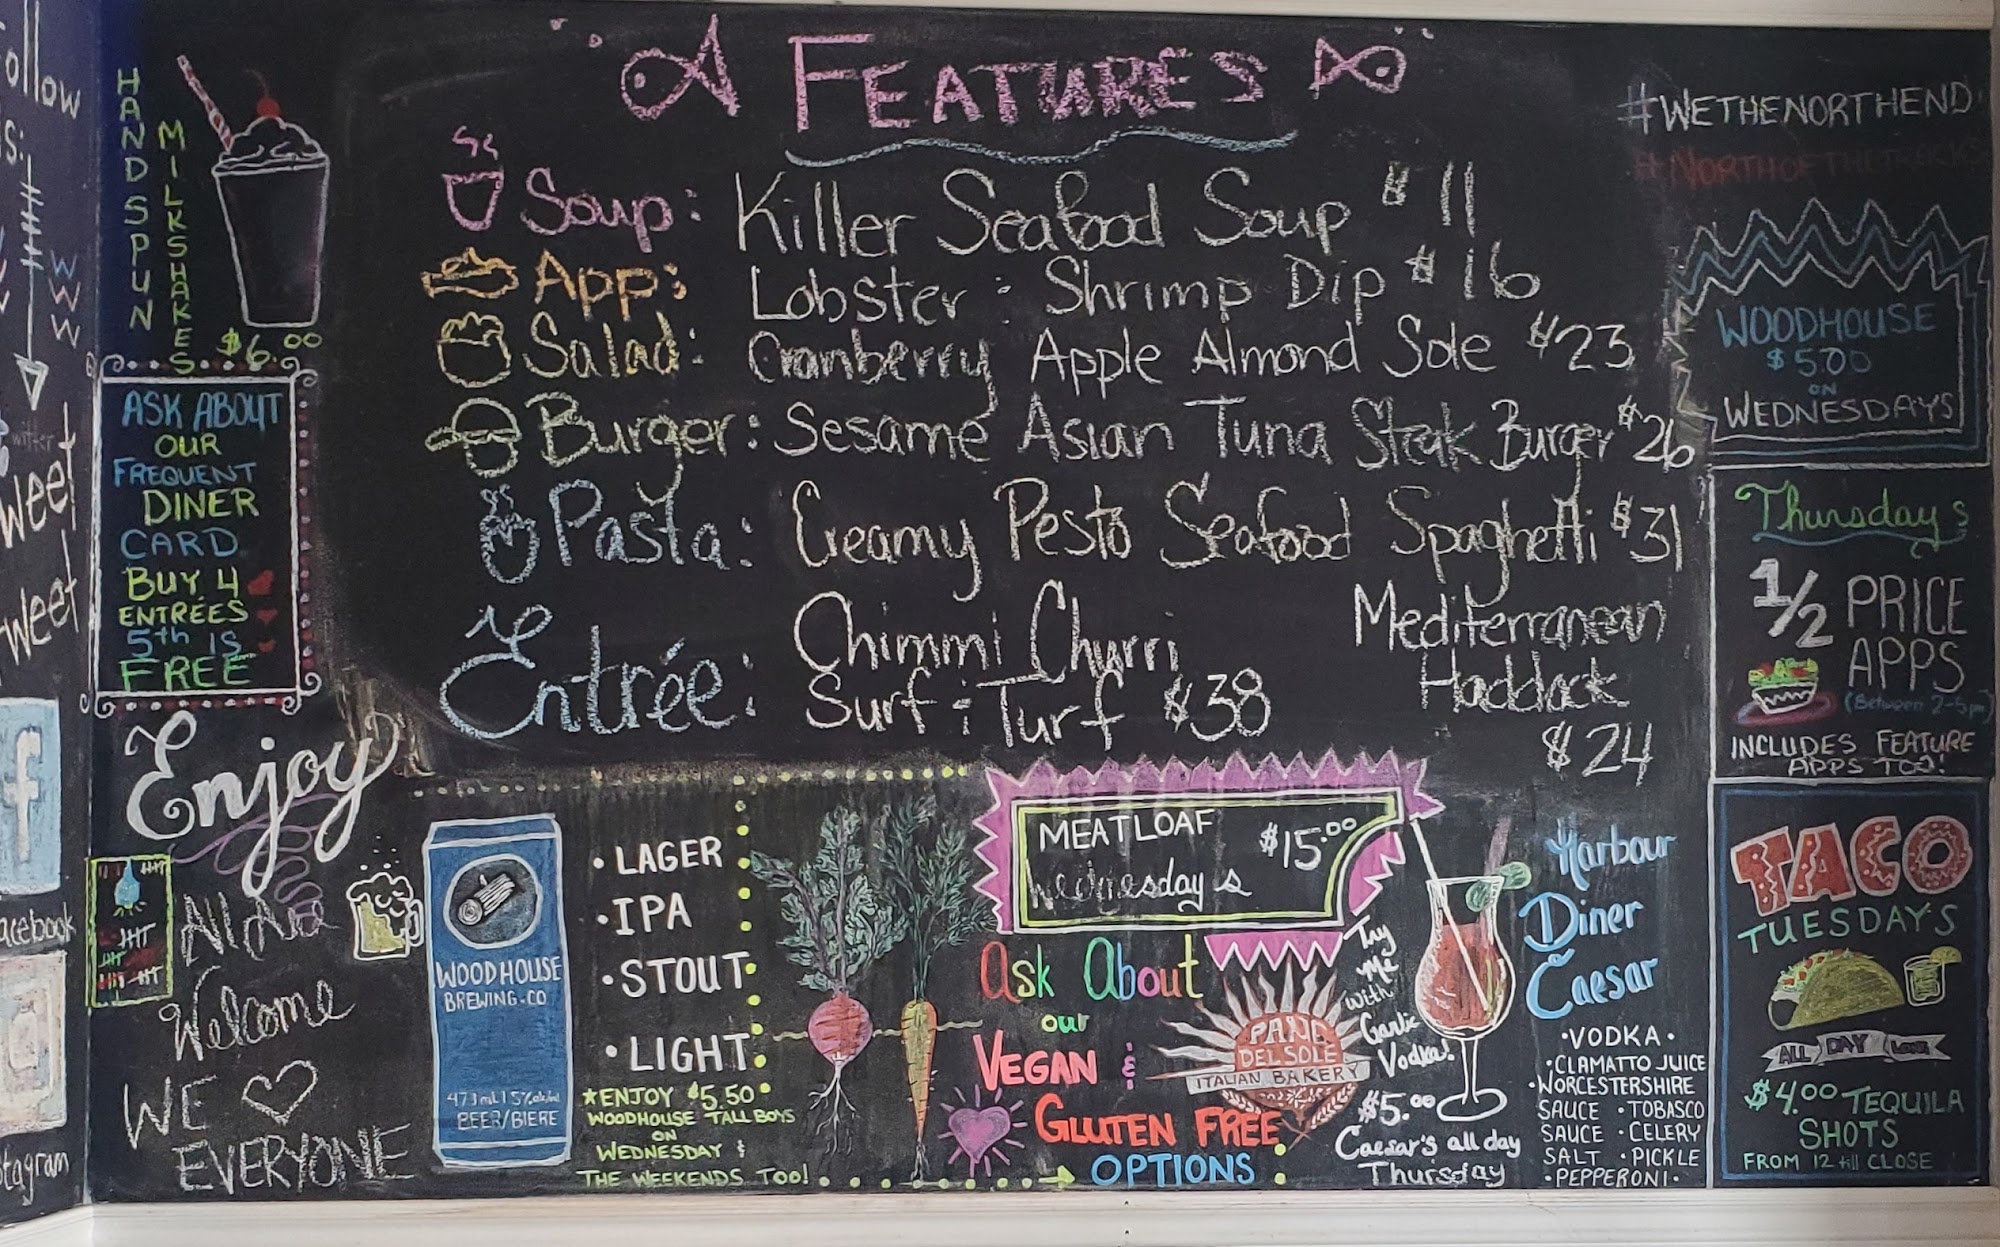 Follow
us:
W
W
W
twitter
tweet
tweet
f
facebook
HANDSPUN
MILKSHAKES
$6.00
ASK ABOUT
OUR
FREQUENT
DINER
CARD
BUY 4
ENTRÉES
5th IS
FREE
Enjoy
All Are
Welcome
WE ♡
EVERYONE
FEATURES
Soup: Killer Seafood Soup $11
App: Lobster & Shrimp Dip $16
Salad: Cranberry Apple Almond Sole $23
Burger: Sesame Asian Tuna Steak Burger $26
Pasta: Creamy Pesto Seafood Spaghetti $31
Entrée: Chimmi Churri
Surf & Turf $38
Mediterranean
Haddock
$24
WOODHOUSE
BREWING CO
473mL 5%alc/vol
BEER/BIERE
• LAGER
• IPA
• STOUT
• LIGHT
★ENJOY $5.50
WOODHOUSE TALL BOYS
ON
WEDNESDAY &
THE WEEKENDS TOO!
MEATLOAF $15.00
Wednesday's
Ask About
our
VEGAN &
GLUTEN FREE
OPTIONS
PANE
DEL SOLE
ITALIAN BAKERY
Try
Me
with
Garlic
Vodka!
$5.00
Caesar's all day
Thursday
Harbour
Diner
Caesar
• VODKA •
• CLAMATTO JUICE
• WORCESTERSHIRE
SAUCE • TOBASCO
SAUCE • CELERY
SALT • PICKLE
• PEPPERONI •
#WETHENORTHEND
#NORTHOFTHETRACKS
WOODHOUSE
$5.00
ON
WEDNESDAYS
Thursday's
1/2 PRICE
APPS
(Between 2-5pm)
INCLUDES FEATURE
APPS TOO!
TACO
TUESDAY'S
ALL DAY LONG
$4.00 TEQUILA
SHOTS
FROM 12 till CLOSE